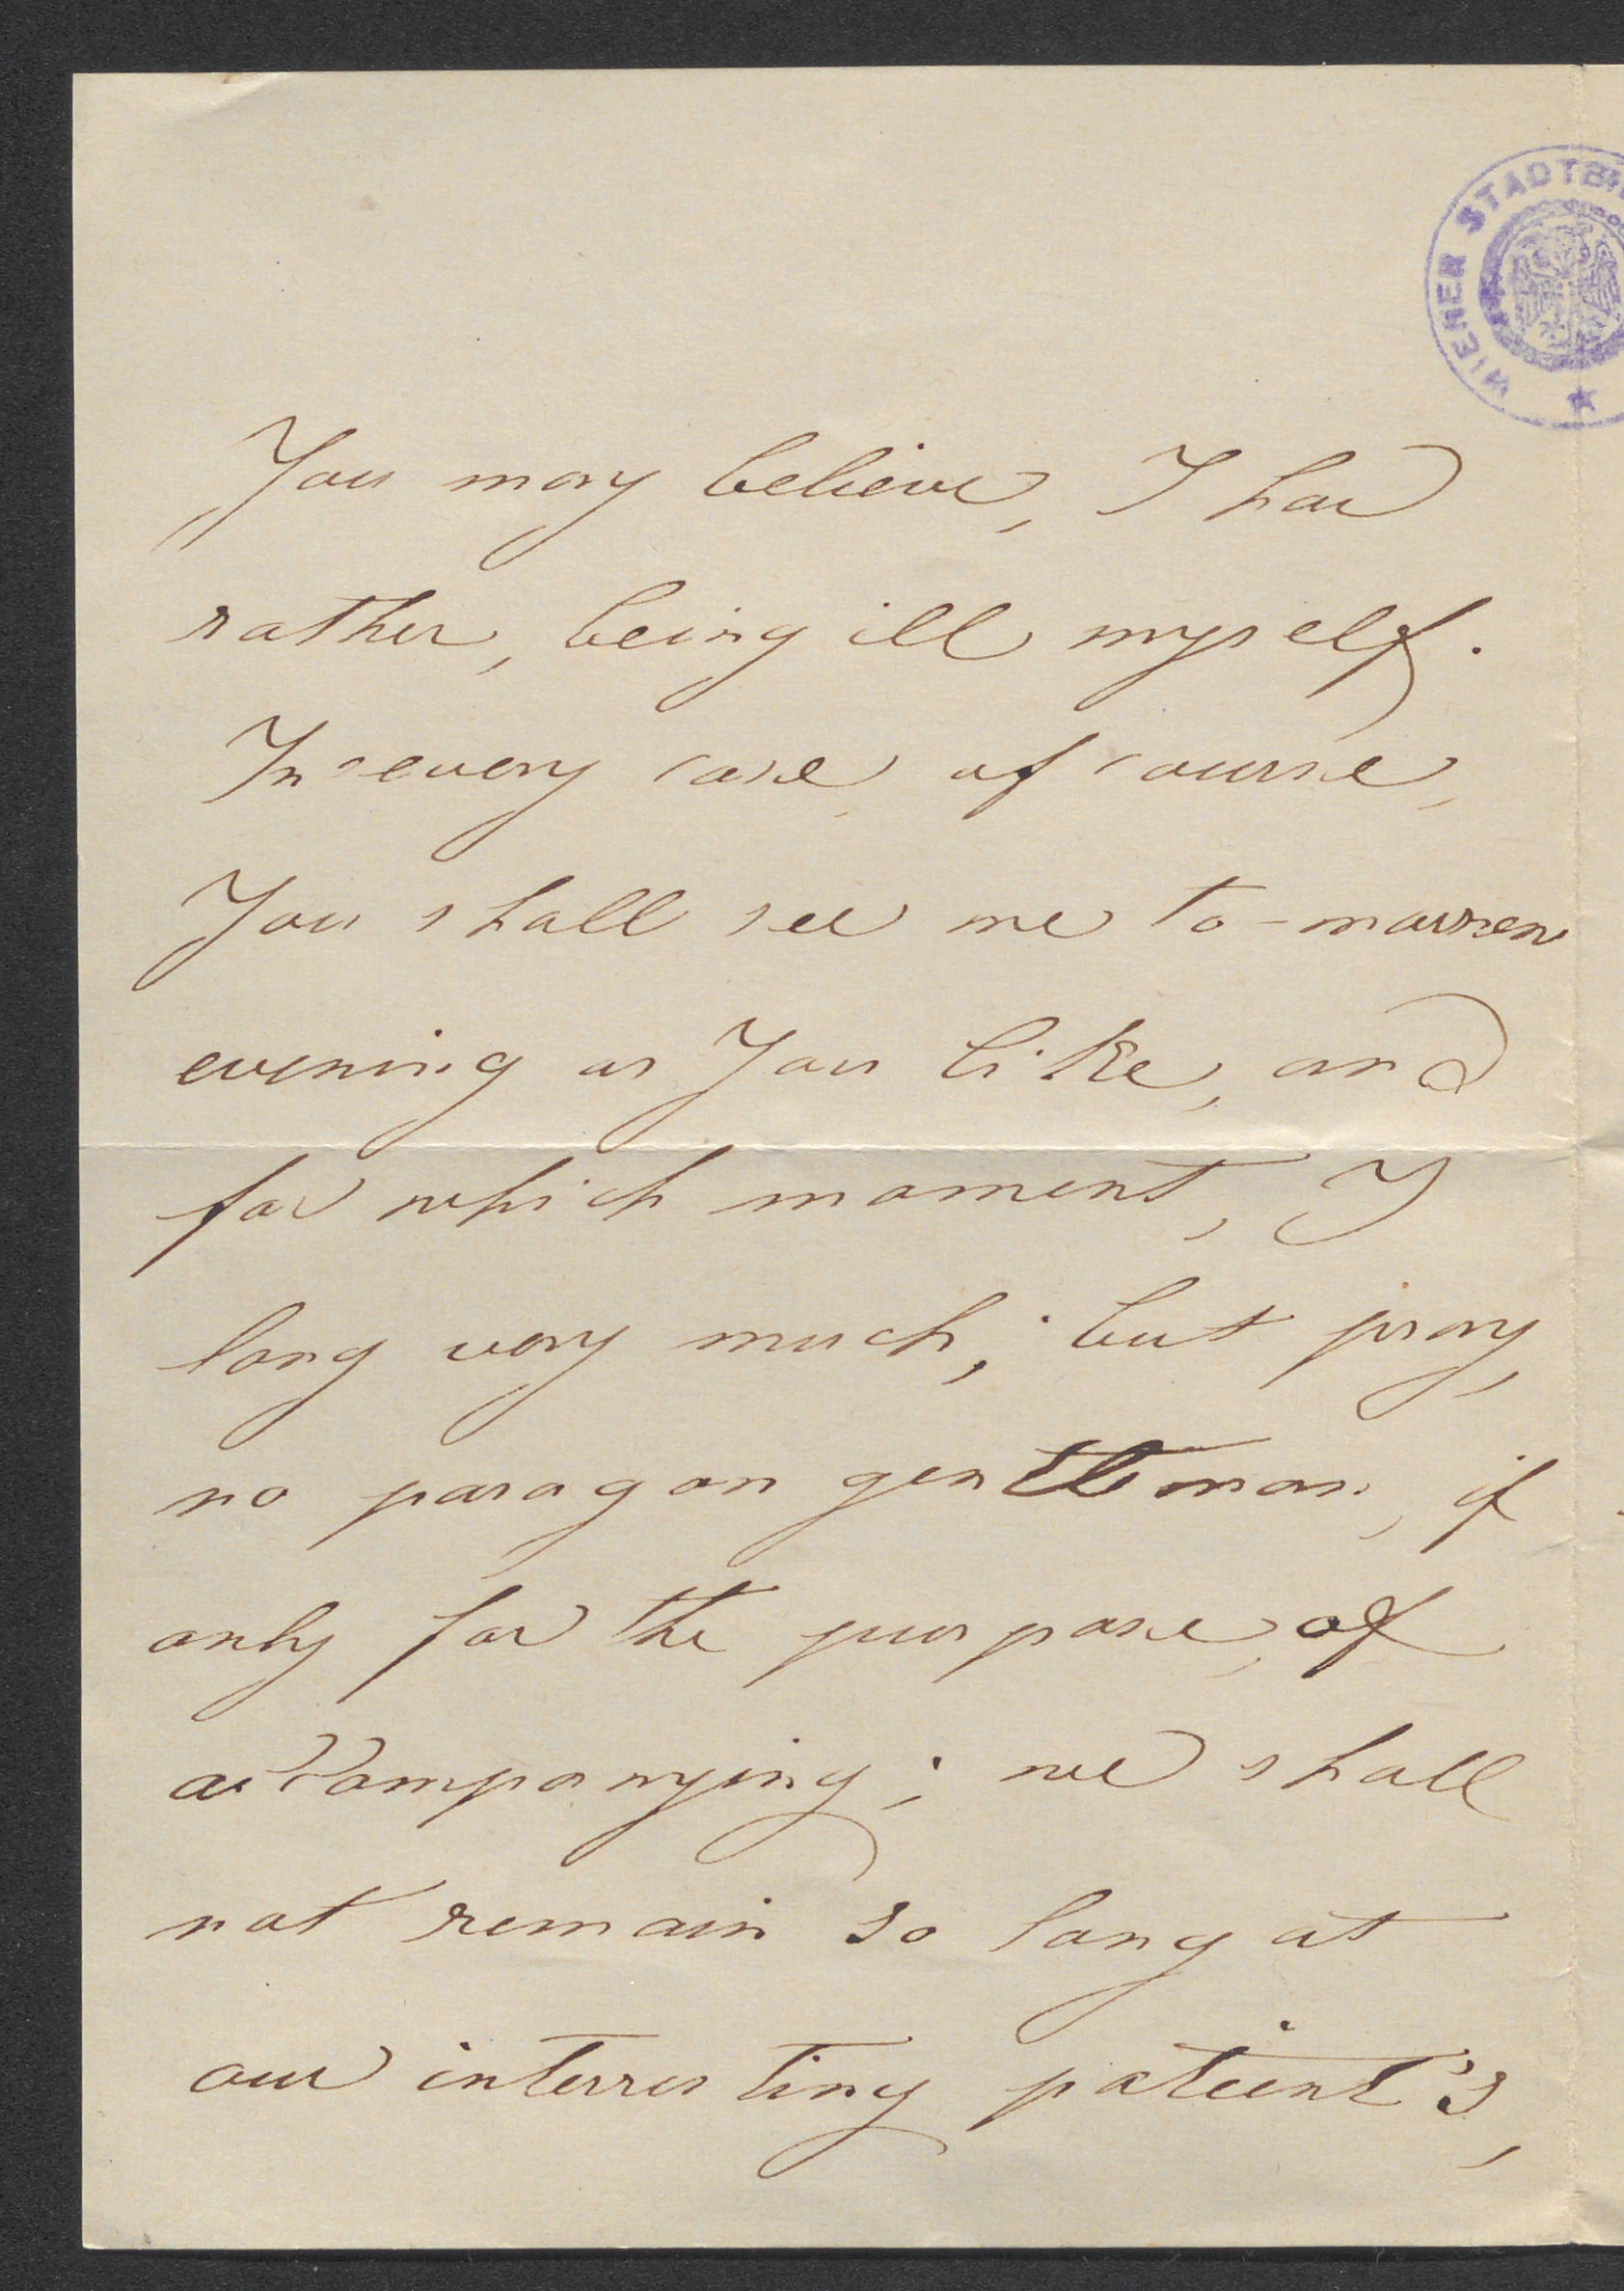 WIENER STADTBI
You may believe, I had
rather, being ill myself.
In every case, of course,
You shall see me to-morrow
evening as You like, and
for which moment, I
long very much; but pray,
no paragon gentleman, if
only for the purpose, of
accompanying; we shall
not remain so long at
our interresting patient's,